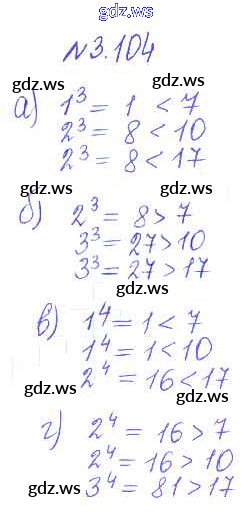 gdz.ws
№3.104
gdz.ws gdz.ws
а) 1³ = 1 < 7
2³ = 8 < 10
2³ = 8 < 17
gdz.ws gdz.ws
б) 2³ = 8 > 7
3³ = 27 > 10
3³ = 27 > 17
gdz.ws
в) 1⁴ = 1 < 7
1⁴ = 1 < 10
2⁴ = 16 < 17
gdz.ws gdz.ws
г) 2⁴ = 16 > 7
2⁴ = 16 > 10
3⁴ = 81 > 17
gdz.ws gdz.ws
gdz.ws